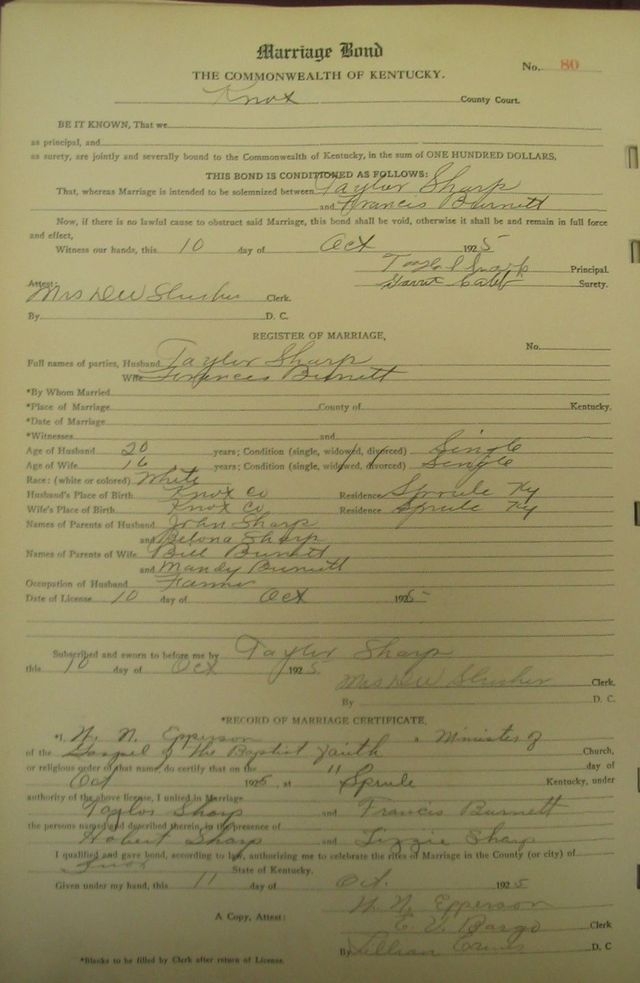 Marriage Bond
No. 80
THE COMMONWEALTH OF KENTUCKY.
Knox County Court.
BE IT KNOWN, That we
as principal, and
as surety, are jointly and severally bound to the Commonwealth of Kentucky, in the sum of ONE HUNDRED DOLLARS,
THIS BOND IS CONDITIONED AS FOLLOWS:
That, whereas Marriage is intended to be solemnized between Taylor Sharp
and Francis Burnett
Now, if there is no lawful cause to obstruct said Marriage, this bond shall be void, otherwise it shall be and remain in full force
and effect,
Witness our hands, this 10 day of Oct 1925
Taylor Sharp Principal.
Surety.
Attest:
Mrs D W Slusher Clerk.
By D. C.
REGISTER OF MARRIAGE,
No.
Full names of parties, Husband Taylor Sharp
Wife Frances Burnett
*By Whom Married
*Place of Marriage County of Kentucky.
*Date of Marriage
*Witnesses and
Age of Husband 20 years; Condition (single, widowed, divorced) Single
Age of Wife 16 years; Condition (single, widowed, divorced) Single
Race: (white or colored) White
Husband's Place of Birth Knox Co Residence Sprule Ky
Wife's Place of Birth Knox Co Residence Sprule Ky
Names of Parents of Husband John Sharp
and Belona Sharp
Names of Parents of Wife Bill Burnett
and Mandy Burnett
Occupation of Husband Farmer
Date of License 10 day of Oct 1925
Subscribed and sworn to before me by Taylor Sharp
this 10 day of Oct 1925
Mrs D W Slusher Clerk.
By D. C.
*RECORD OF MARRIAGE CERTIFICATE.
*I, W. N. Epperson a Minister of
of the Gospel of the Baptist faith Church,
or religious order of that name, do certify that on the 11 day of
Oct 1925, at Sprule Kentucky, under
authority of the above license, I united in Marriage
Taylor Sharp and Francis Burnett
the persons named and described therein, in the presence of
Hobert Sharp and Lizzie Sharp
I qualified and gave bond, according to law, authorizing me to celebrate the rites of Marriage in the County (or city) of
Knox State of Kentucky.
Given under my hand, this 11 day of Oct. 1925
W. N. Epperson
A Copy, Attest: Bargo Clerk
By Lillian D. C
*Blanks to be filled by Clerk after return of License.